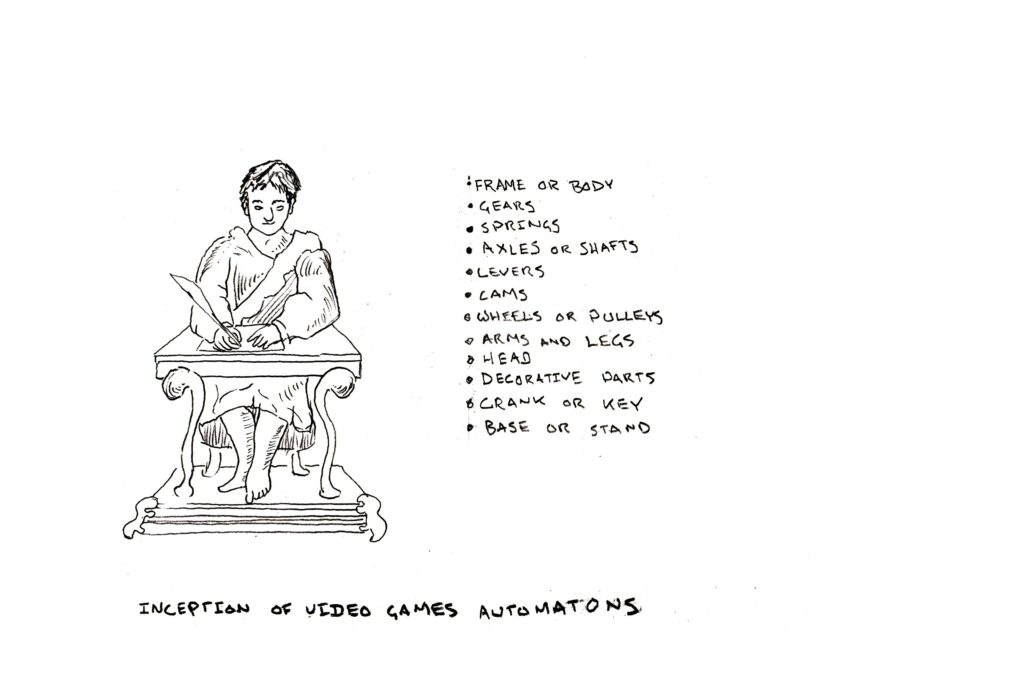 • FRAME OR BODY
• GEARS
• SPRINGS
• AXLES OR SHAFTS
• LEVERS
• CAMS
• WHEELS OR PULLEYS
• ARMS AND LEGS
• HEAD
• DECORATIVE PARTS
• CRANK OR KEY
• BASE OR STAND
INCEPTION OF VIDEO GAMES AUTOMATONS